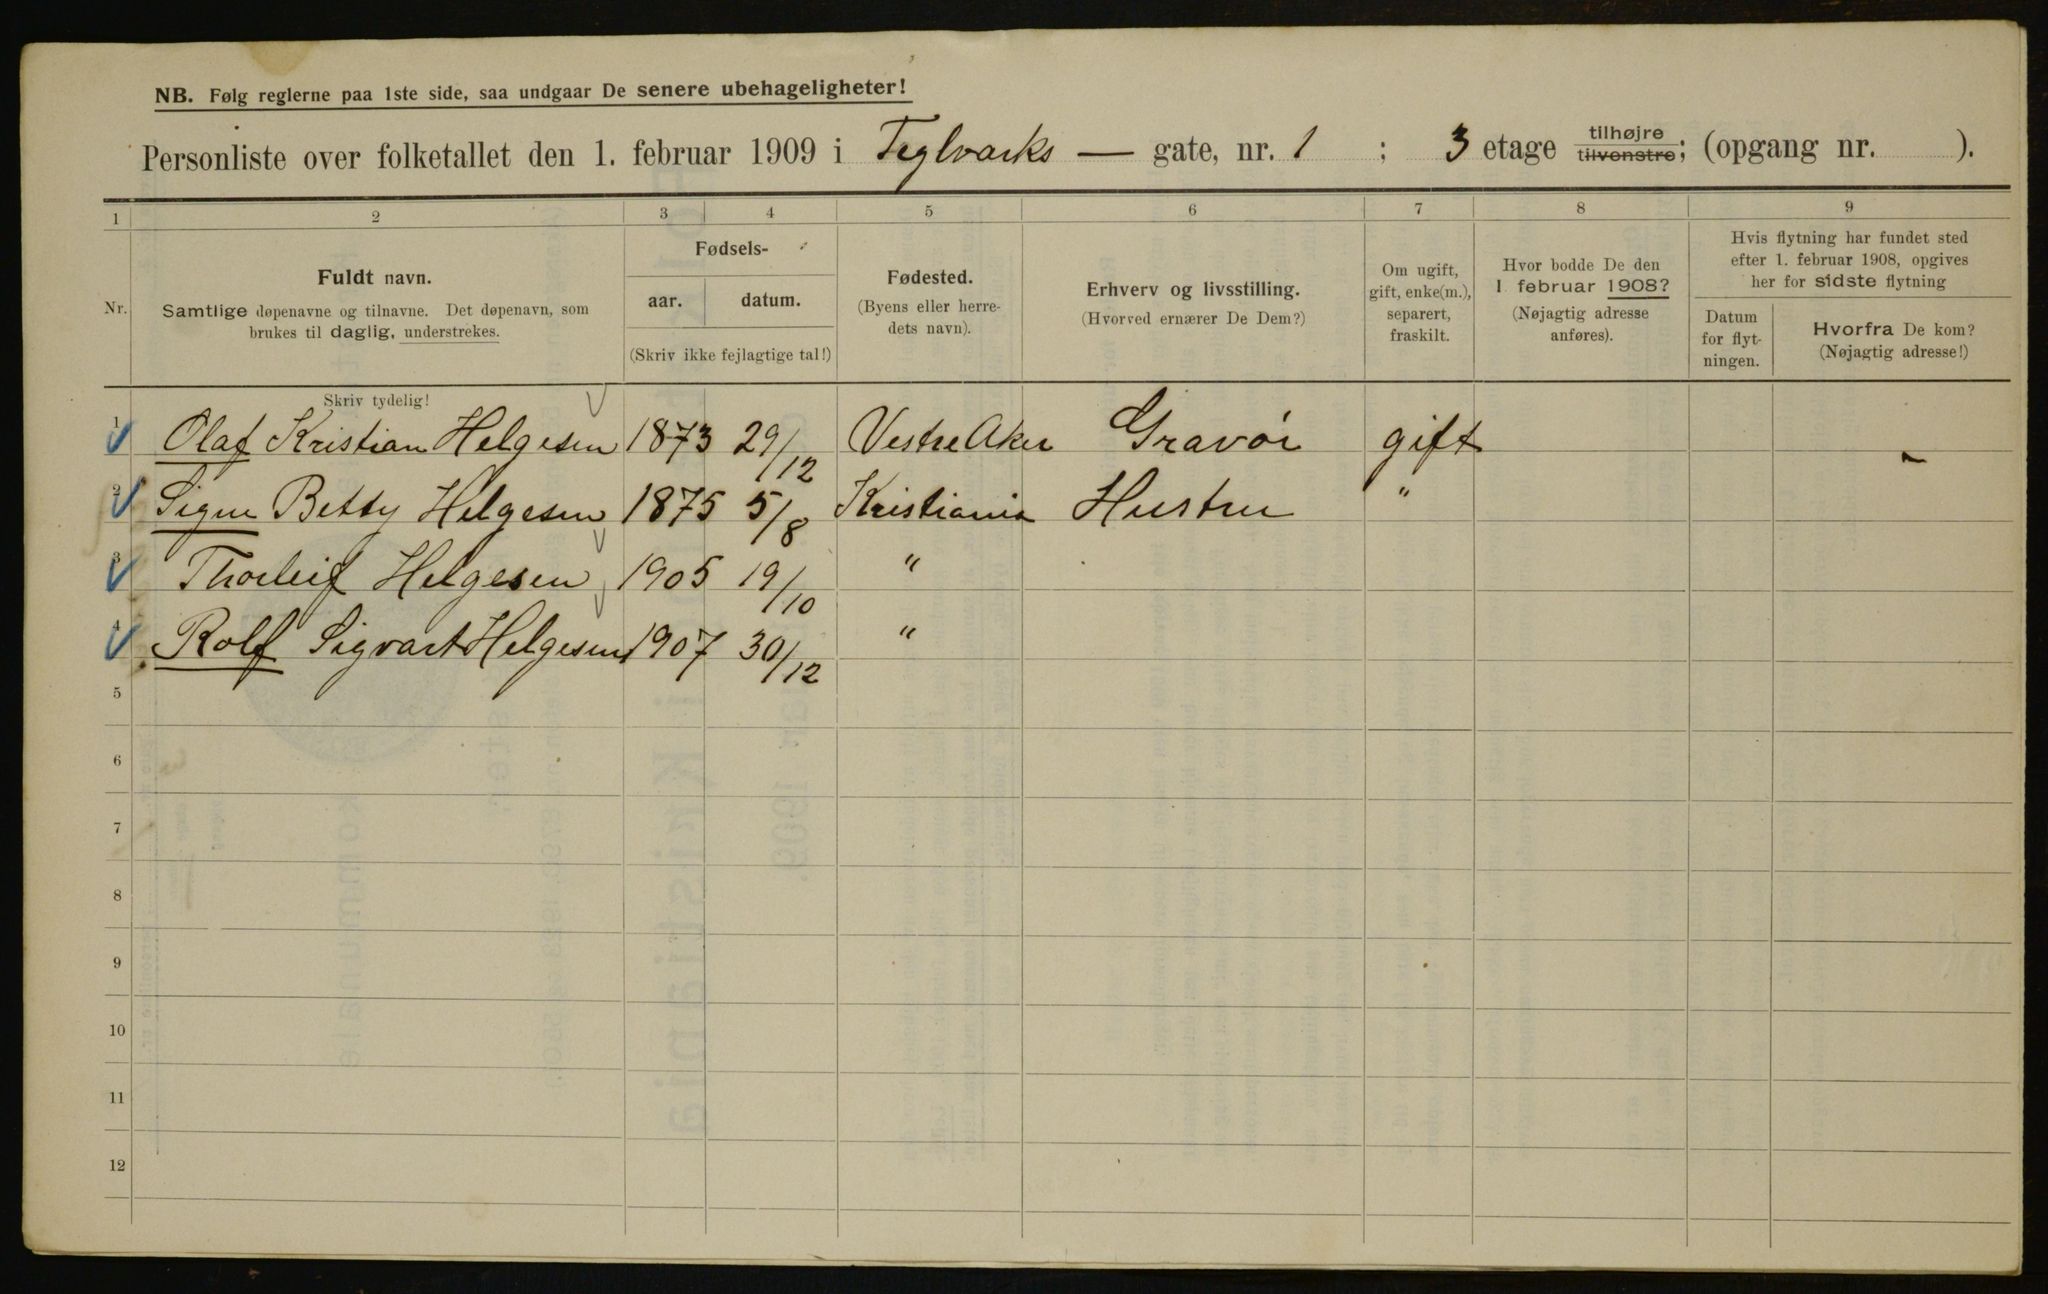 NB. Følg reglerne paa 1ste side, saa undgaar De senere ubehageligheter!
Personliste over folketallet den 1. februar 1909 i Teglværks — gate, nr. 1 ; 3 etage tilhøjre tilvenstre; (opgang nr. ).
1 2 3 4 5 6 7 8 9
Nr.
Fuldt navn.
Samtlige døpenavne og tilnavne. Det døpenavn, som
brukes til daglig, understrekes.
Fødsels-
aar. datum.
(Skriv ikke fejlagtige tal!)
Fødested.
(Byens eller herre-
dets navn).
Erhverv og livsstilling.
(Hvorved ernærer De Dem?)
Om ugift,
gift, enke(m.),
separert,
fraskilt.
Hvor bodde De den
1 februar 1908?
(Nøjagtig adresse
anføres).
Hvis flytning har fundet sted
efter 1. februar 1908, opgives
her for sidste flytning
Datum
for flyt-
ningen.
Hvorfra De kom?
(Nøjagtig adresse!)
Skriv tydelig!
1 Olaf Kristian Helgesen 1873 29/12 Vestre Aker Gravør gift -
2 Signe Betty Helgesen 1875 5/8 Kristiania Hustru "
3 Thorleif Helgesen 1905 19/10 "
4 Rolf Sigvart Helgesen 1907 30/12 "
5
6
7
8
9
10
11
12